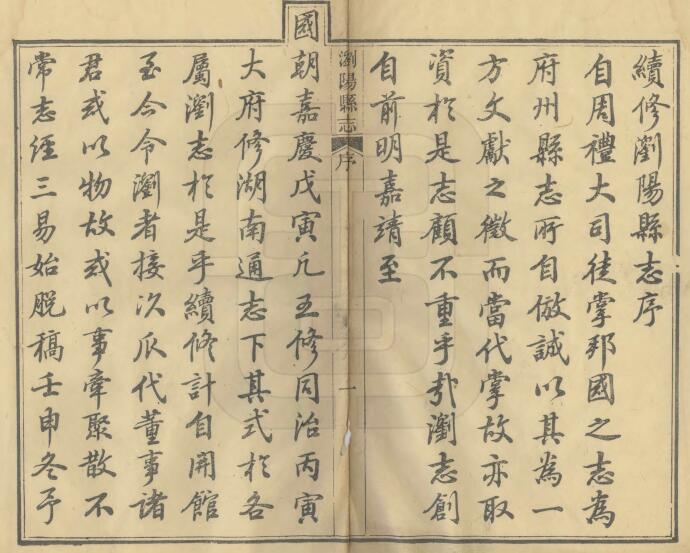 續修瀏陽縣志序
自周禮大司徒掌邦國之志為
府州縣志所自倣誠以其為一
方文獻之徵而當代掌故亦取
資於是志顧不重乎哉瀏志創
自前明嘉靖至
瀏陽縣志 序 一
國朝嘉慶戊寅凡五修同治丙寅
大府修湖南通志下其式於各
屬瀏志於是乎續修計自開館
至今令瀏者接次瓜代董事諸
君或以物故或以事牽聚散不
常志經三易始脫稿壬申冬予